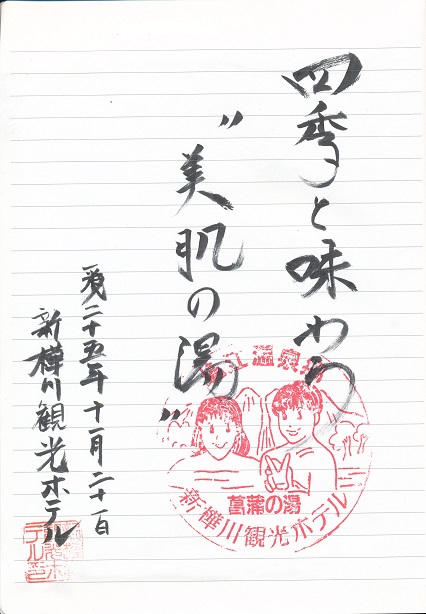 四季と味わう
"美肌の湯"
平成二十五年十一月二十一日
新樺川観光ホテル
江温泉
菖蒲の湯
新樺川観光ホテル